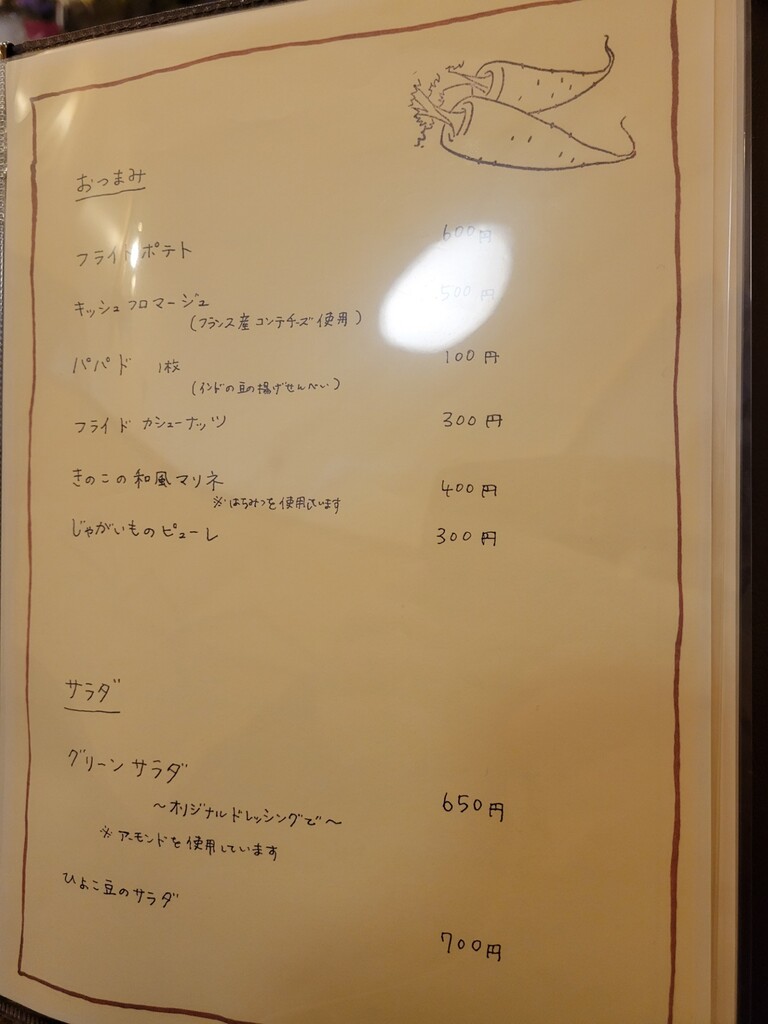 おつまみ
フライドポテト 600円
キッシュフロマージュ 500円
(フランス産コンテチーズ使用)
パパド 1枚 100円
(インドの豆の揚げせんべい)
フライドカシューナッツ 300円
きのこの和風マリネ 400円
※はちみつを使用しています
じゃがいものピューレ 300円
サラダ
グリーンサラダ
~オリジナルドレッシングで~ 650円
※アーモンドを使用しています
ひよこ豆のサラダ
700円